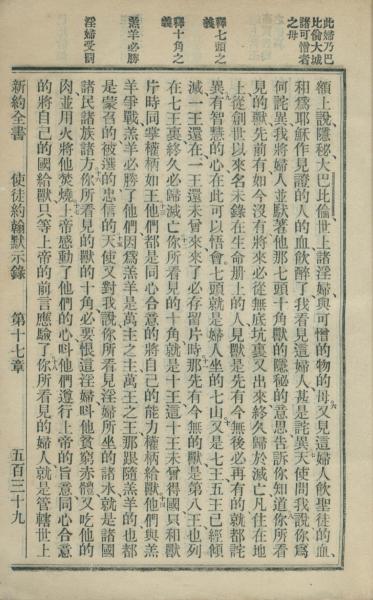 此婦乃巴
比倫大城
諸可憎者
之母
釋七頭之
義
釋十角之
義
羔羊必勝
淫婦受罰
額上說隱秘大巴比倫世上諸淫婦與可憎的物的母又見這婦人飲聖徒的血
和爲耶穌作見證的人的血飲醉了我看見這婦人甚是詫異天使問我說你爲
何詫異我將婦人並馱著他那七頭十角獸的隱秘的意思告訴你知道你所看
見的獸先前有如今沒有將來必從無底坑裏又出來終久歸於滅亡凡住在地
上從創世以來名未錄在生命册上的人見獸是先有今無後必再有的就都詫
異有智慧的心在此可以悟會七頭就是婦人坐的七山又是七王五王已經傾
滅一王還在一王還未曾來來了必存留片時那先有今無的獸是第八王也列
在七王裏終久必歸滅亡你所看見的十角就是十王這十王未曾得國只和獸
片時同掌權柄如王他們都是同心合意的將自己的能力權柄給獸他們與羔
羊爭戰羔羊必勝了他們因爲羔羊是萬主之主萬王之王那跟隨羔羊的也都
是蒙召的被選的忠信的天使又對我說你所看見淫婦所坐的諸水就是諸國
諸民諸族諸方你所看見的獸的十角必要恨這淫婦呌他貧窮赤體又吃他的
肉並用火將他焚燒上帝感動了他們的心呌他們遵行上帝的旨意同心合意
的將自己的國給獸只等上帝的前言應驗了你所看見的婦人就是管轄世上
新約全書 使徒約翰默示錄 第十七章 五百三十九